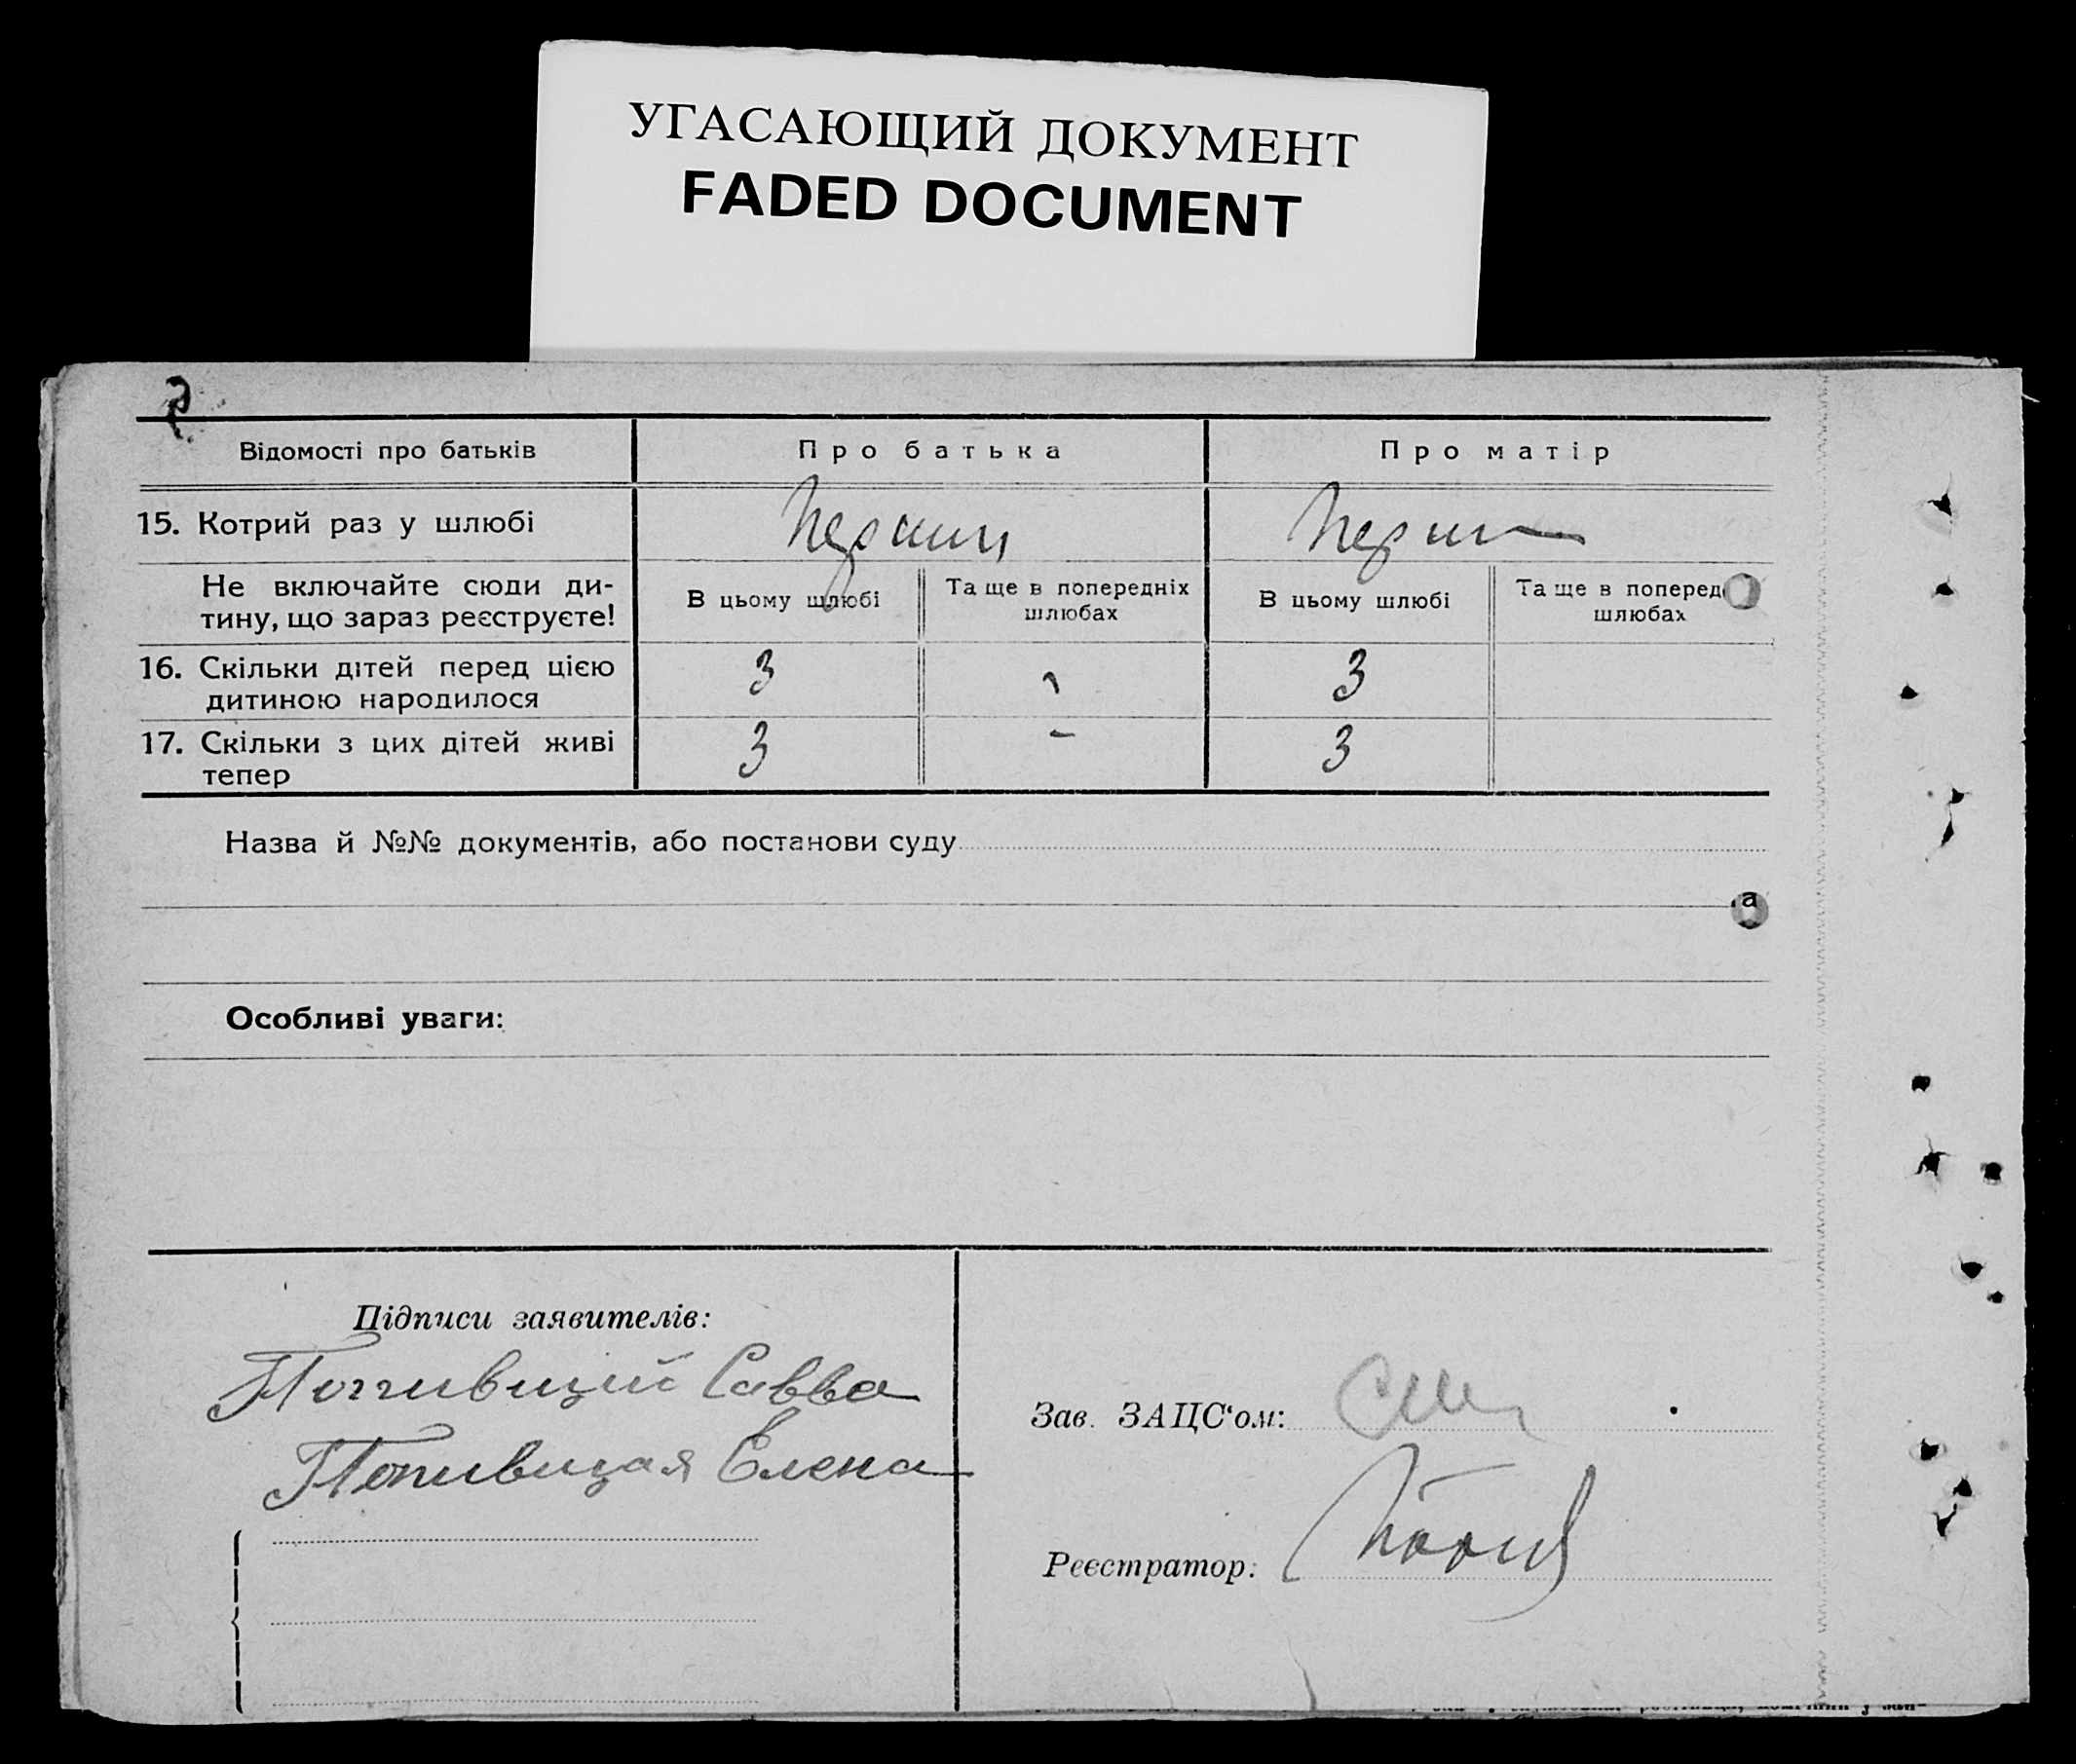 УГАСАЮЩИЙ ДОКУМЕНТ
FADED DOCUMENT
Відомості про батьків
Про батька
Про матір
15. Котрий раз у шлюбі
Перший
Перш
Не включайте сюди ди-
тину, що зараз реєструєте!
В цьому шлюбі
Та ще в попередніх
шлюбах
В цьому шлюбі
Та ще в поперед
шлюбах
16. Скільки дітей перед цією
дитиною народилося
3
3
17. Скільки з цих дітей живі
тепер
3
-
3
Назва й №№ документів, або постанови суду
а
Особливі уваги:
Підписи заявителів:
Попивщий Савва
Попивщая Елена
Зав. ЗАЦС'ом:
Реєстратор: